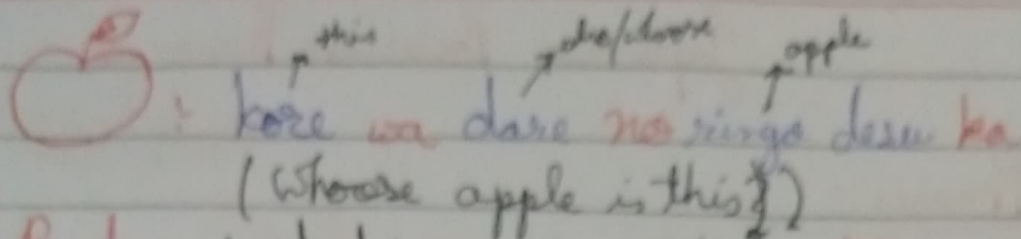 this apple
: kore wa dare no ringo desu ka
(Whoose apple is this?)